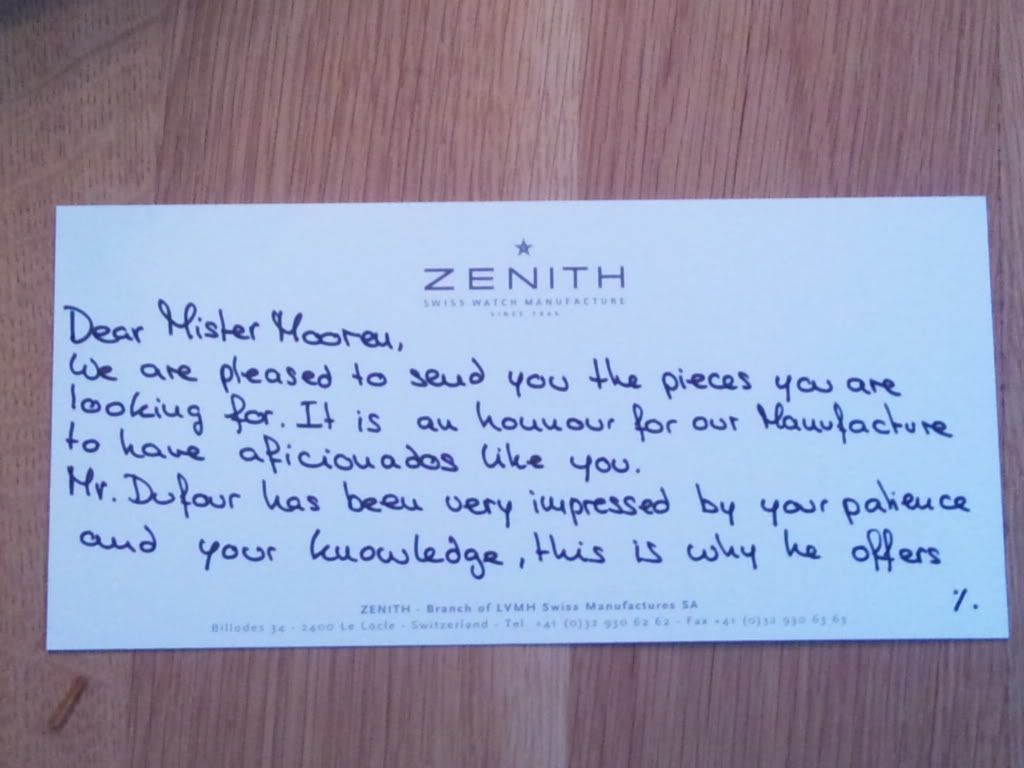 ZENITH
SWISS WATCH MANUFACTURE
SINCE 1865
Dear Mister Mooren,
We are pleased to send you the pieces you are
looking for. It is an honnour for our Manufacture
to have aficionados like you.
Mr. Dufour has been very impressed by your patience
and your knowledge, this is why he offers
./.
ZENITH - Branch of LVMH Swiss Manufactures SA
Billodes 34 - 2400 Le Locle - Switzerland - Tel. +41 (0)32 930 62 62 - Fax +41 (0)32 930 63 63